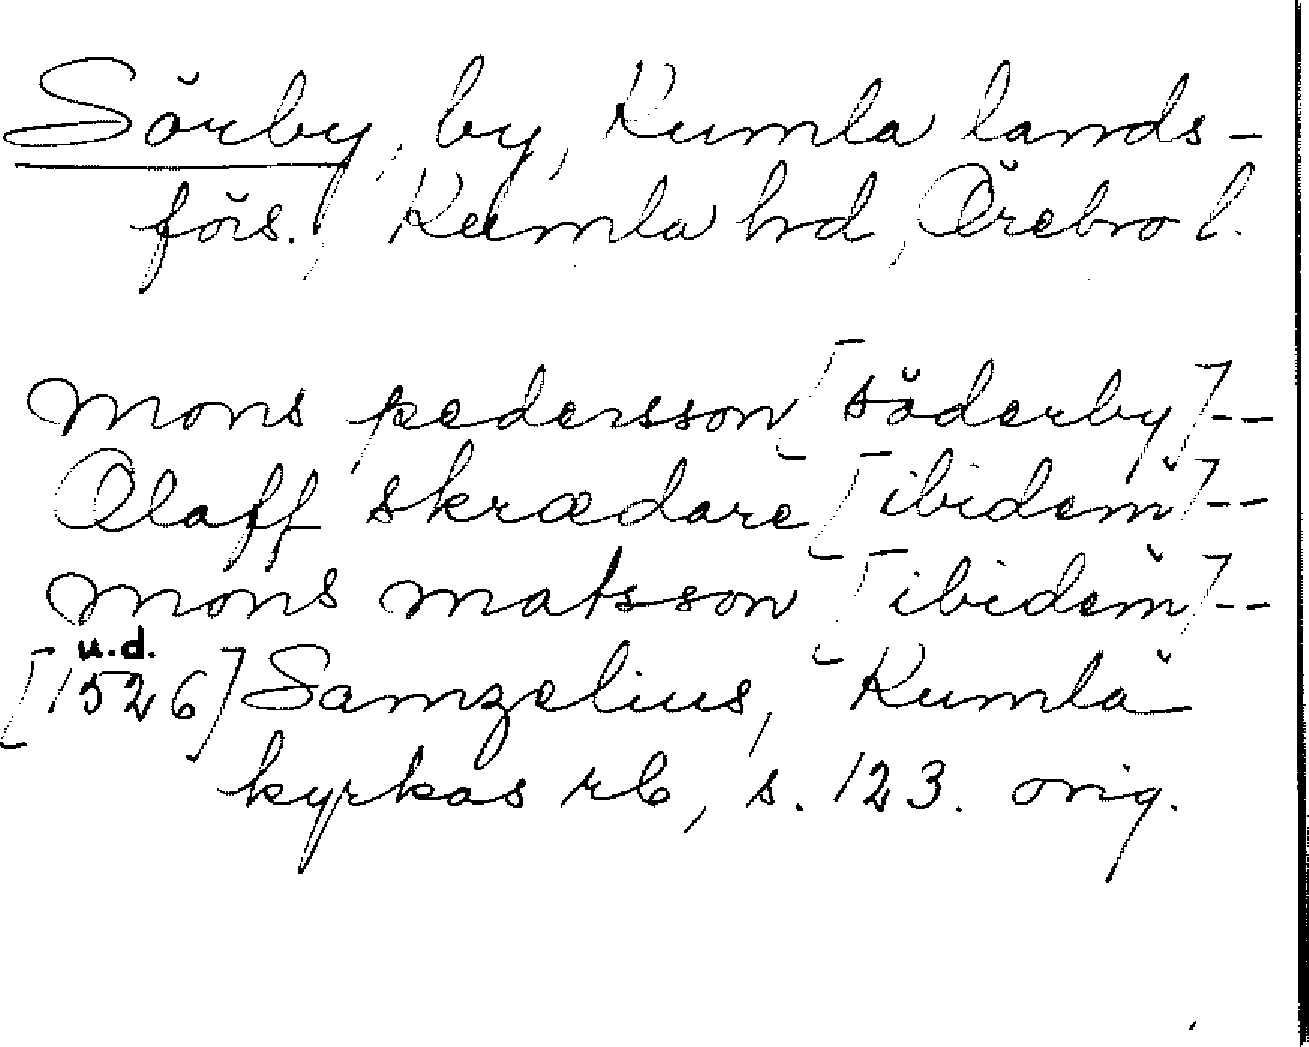 Sörby, by, Kumla lands-
förs., Kumla hrd, Örebro l.
mons pedersson [söderby]--
Olaff skrædare [ibidem]--
mons matsson [ibidem]--
u.d.
[1526] Samzelius, Kumla
kyrkas rb, s. 123. orig.